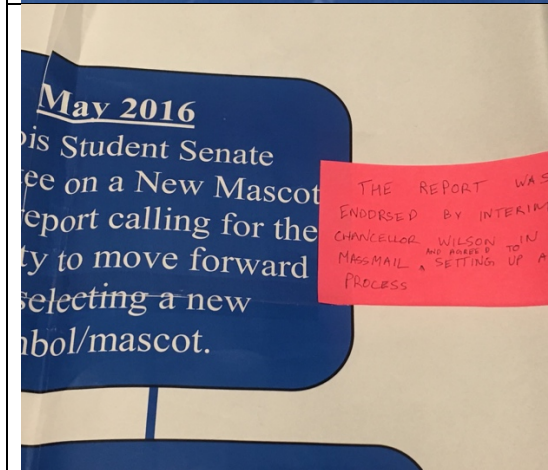 May 2016
ois Student Senate
ee on a New Mascot
eport calling for the
ty to move forward
selecting a new
nbol/mascot.
THE REPORT WAS
ENDORSED BY INTERIM
CHANCELLOR WILSON IN
MASSMAIL ^ AND AGREED TO SETTING UP A
PROCESS